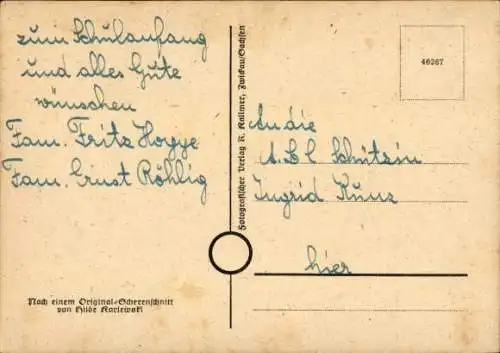 zum Schulanfang
und alles Gute
wünschen
Fam. Fritz Hoyye
Fam. Ernst Röhlig
Nach einem Original-Scherenschnitt
von Hilde Karlewski
Fotografischer Verlag R. Kallmer, Zwickau/Sachsen
46267
An die
A.B.C Schützin
Ingrid Kunz
hier